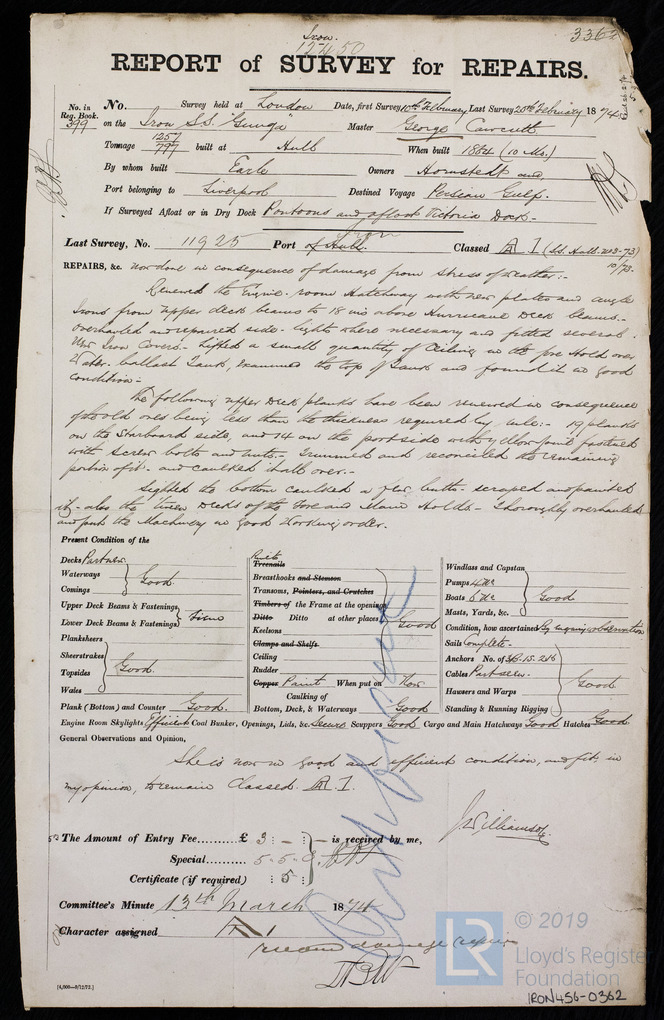 Iron
15450
3362
REPORT of SURVEY for REPAIRS.
No. in Reg. Book. 399
No. Survey held at London Date, first Survey 10th February Last Survey 20th February 1874
on the Iron S.S. "Gunga" Master George Cawcutt
Tonnage 1257 / 797 built at Hull When built 1864 (10 Mo.)
By whom built Earle Owners Hornstedt and
Port belonging to Liverpool Destined Voyage Persian Gulf.
If Surveyed Afloat or in Dry Dock Pontoons and afloat Victoria Dock -
Last Survey, No. 11925 Port of Hull. Classed A 1 (S.S. Hull. No 3-73)
10/73.
REPAIRS, &c. now done in consequence of damage from stress of weather:-
Renewed the Engine-room Hatchway with new plates and angle
Irons from upper deck beams to 18 ins above Hurricane Deck beams.-
overhauled and repaired side-lights where necessary and fitted several
New Iron Covers:- Lifted a small quantity of Ceiling in the fore Hold over
Water-ballast Tank, examined the top of Tank and found it in good
condition:-
The following upper Deck planks have been renewed in consequence
of the old ones being less than the thickness required by rule:- 19 planks
on the Starboard side, and 14 on the port side with yellow pine fastened
with screw bolts and nuts:- Trimmed and reconciled the remaining
portion of it - and caulked it all over.-
Sighted the bottom caulked a few butts - scraped and painted
it - also the tween Decks of the Fore and Main Holds - Thoroughly overhauled
and put the Machinery in good working order.
Present Condition of the
Decks Part new.
Waterways
Comings
Good
Upper Deck Beams & Fastenings,
Lower Deck Beams & Fastenings
Planksheers
Sheerstrakes
Topsides
Wales
Good
Plank (Bottom) and Counter Good.
Rivets
Treenails
Breasthooks and Stemson
Transoms, Pointers, and Crutches
Timbers of the Frame at the openings
Ditto Ditto at other places
Keelsons
Clamps and Shelfs
Ceiling
Rudder
Good
Copper Paint When put on Now
Caulking of
Bottom, Deck, & Waterways Good
Windlass and Capstan
Pumps
Boats
Masts, Yards, &c.
Good
Condition, how ascertained By enquiry & observation
Sails Complete -
Anchors No. of
Cables Part new.
Hawsers and Warps
Standing & Running Rigging
Good
Engine Room Skylights Efficient Coal Bunker, Openings, Lids, &c. Secure Scuppers Good Cargo and Main Hatchways Good Hatches Good
General Observations and Opinion,
She is now in good and efficient condition, and fit, in
my opinion, to remain Classed A 1.
J Williamson
The Amount of Entry Fee.......... £ 3 : - : is received by me,
Special.......... 5 - 5 - 0
Certificate (if required) : 5 :
Committee's Minute 13th March 1874
Character assigned A 1
[4,000—9/12/72.]
© 2019
LR
Lloyd's Register
Foundation
IRON456-0362